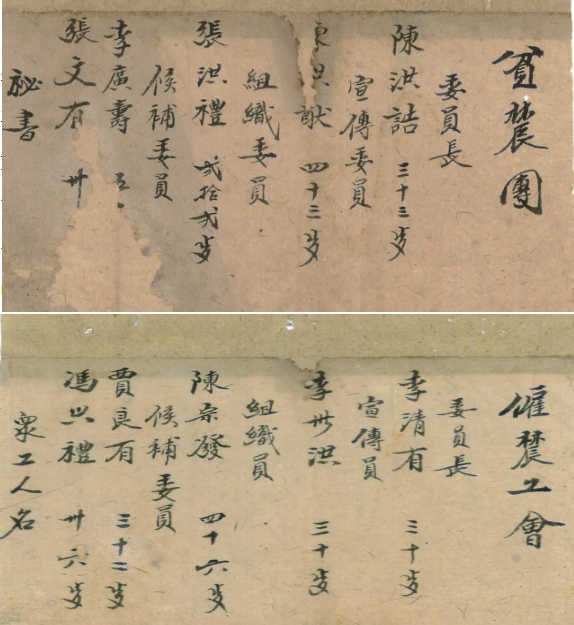 貧農團
委員長
陳洪誥 三十三岁
宣傳委員
洪猷 四十三岁
組織委員
張洪禮 弍拾弍岁
候補委員
李廣壽 五
張文有 卅
祕書
僱農工會
委員長
李清有 三十岁
宣傳員
李世洪 三十岁
組織員
陳宗發 四十六岁
候補委員
賈良有 三十二岁
馮興禮 卅六岁
衆工人名